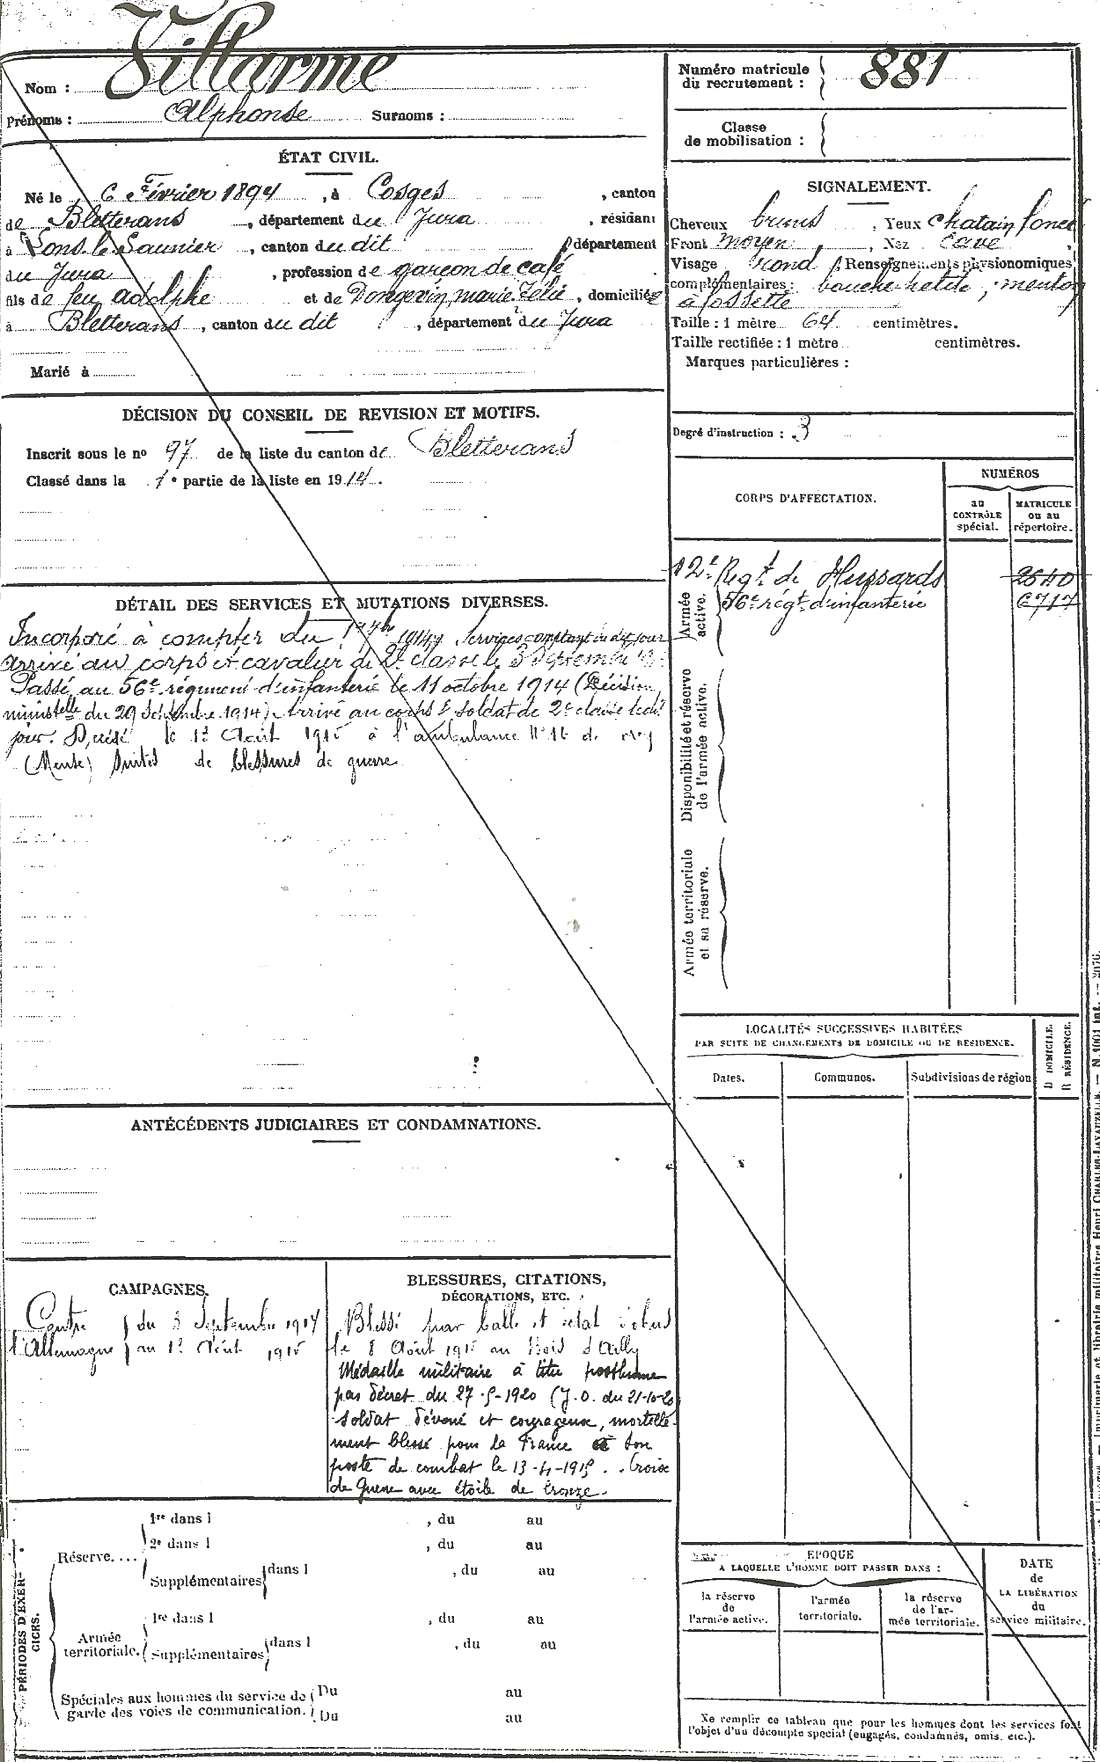 Nom : Villarme
Prénoms : Alphonse Surnoms :
ÉTAT CIVIL.
Né le 6 Février 1894, à Cosges, canton
de Bletterans, département du Jura, résidant
à Lons le Saunier, canton du dit, département
du Jura, profession de garçon de café
fils de feu Adolphe et de Dongevin marie Zélie, domiciliée
à Bletterans, canton du dit, département du Jura
Marié à
DÉCISION DU CONSEIL DE REVISION ET MOTIFS.
Inscrit sous le no 97 de la liste du canton de Bletterans
Classé dans la 1e partie de la liste en 1914.
DÉTAIL DES SERVICES ET MUTATIONS DIVERSES.
Incorporé à compter du 1914,
arrivé au corps et cavalier de 2e classe le 3 Septembre
Passé au 56e régiment d'infanterie le 11 octobre 1914 (Décision
ministelle du 29 1914) Arrivé au corps & soldat de 2e classe
jour. le Août 1915 à l'ambulance de
(Meuse) suites de blessures de guerre
ANTÉCÉDENTS JUDICIAIRES ET CONDAMNATIONS.
CAMPAGNES.
Contre } du 3 Septembre 1914
l'Allemagne } au Août 1915
BLESSURES, CITATIONS,
DÉCORATIONS, ETC.
Blessé par balle et éclat d'obus
le 8 Août 1915 au Bois d'Ailly
Médaille militaire à titre posthume
par décret du 1920 (J.O. du
soldat dévoué et courageux, mortelle-
ment blessé pour la France à son
poste de combat le 13-4-1915. Croix
de Guerre avec étoile de bronze.
PÉRIODES D'EXERCICES.
Réserve....
1re dans l , du au
2e dans l , du au
Supplémentaires { dans l , du au
Armée territoriale.
1re dans l , du au
Supplémentaires { dans l , du au
Spéciales aux hommes du service de { Du au
garde des voies de communication. { Du au
Numéro matricule
du recrutement : 881
Classe
de mobilisation :
SIGNALEMENT.
Cheveux bruns, Yeux chatain foncé
Front moyen, Nez cave,
Visage rond, Renseignements physionomiques
complémentaires : bouche petite, menton
à fossette
Taille : 1 mètre 64 centimètres.
Taille rectifiée : 1 mètre centimètres.
Marques particulières :
Degré d'instruction : 3
CORPS D'AFFECTATION.
NUMÉROS
au
CONTRÔLE
spécial.
MATRICULE
ou au
répertoire.
Armée active.
12e Regt de Hussards 2640
56e régt d'infanterie 6717
Disponibilité et réserve
de l'armée active.
Armée territoriale
et sa réserve.
LOCALITÉS SUCCESSIVES HABITÉES
PAR SUITE DE CHANGEMENTS DE DOMICILE OU DE RÉSIDENCE.
Dates. Communes. Subdivisions de région
D DOMICILE.
R RÉSIDENCE.
ÉPOQUE
A LAQUELLE L'HOMME DOIT PASSER DANS :
la réserve
de
l'armée active.
l'armée
territoriale.
la réserve
de l'ar-
mée territoriale.
DATE
de
LA LIBÉRATION
du
service militaire.
Ne remplir ce tableau que pour les hommes dont les services font
l'objet d'un décompte spécial (engagés, condamnés, omis, etc.).
Imprimerie et librairie militaires Henri CHARLES-LAVAUZELLE. — N. 1001 Int.